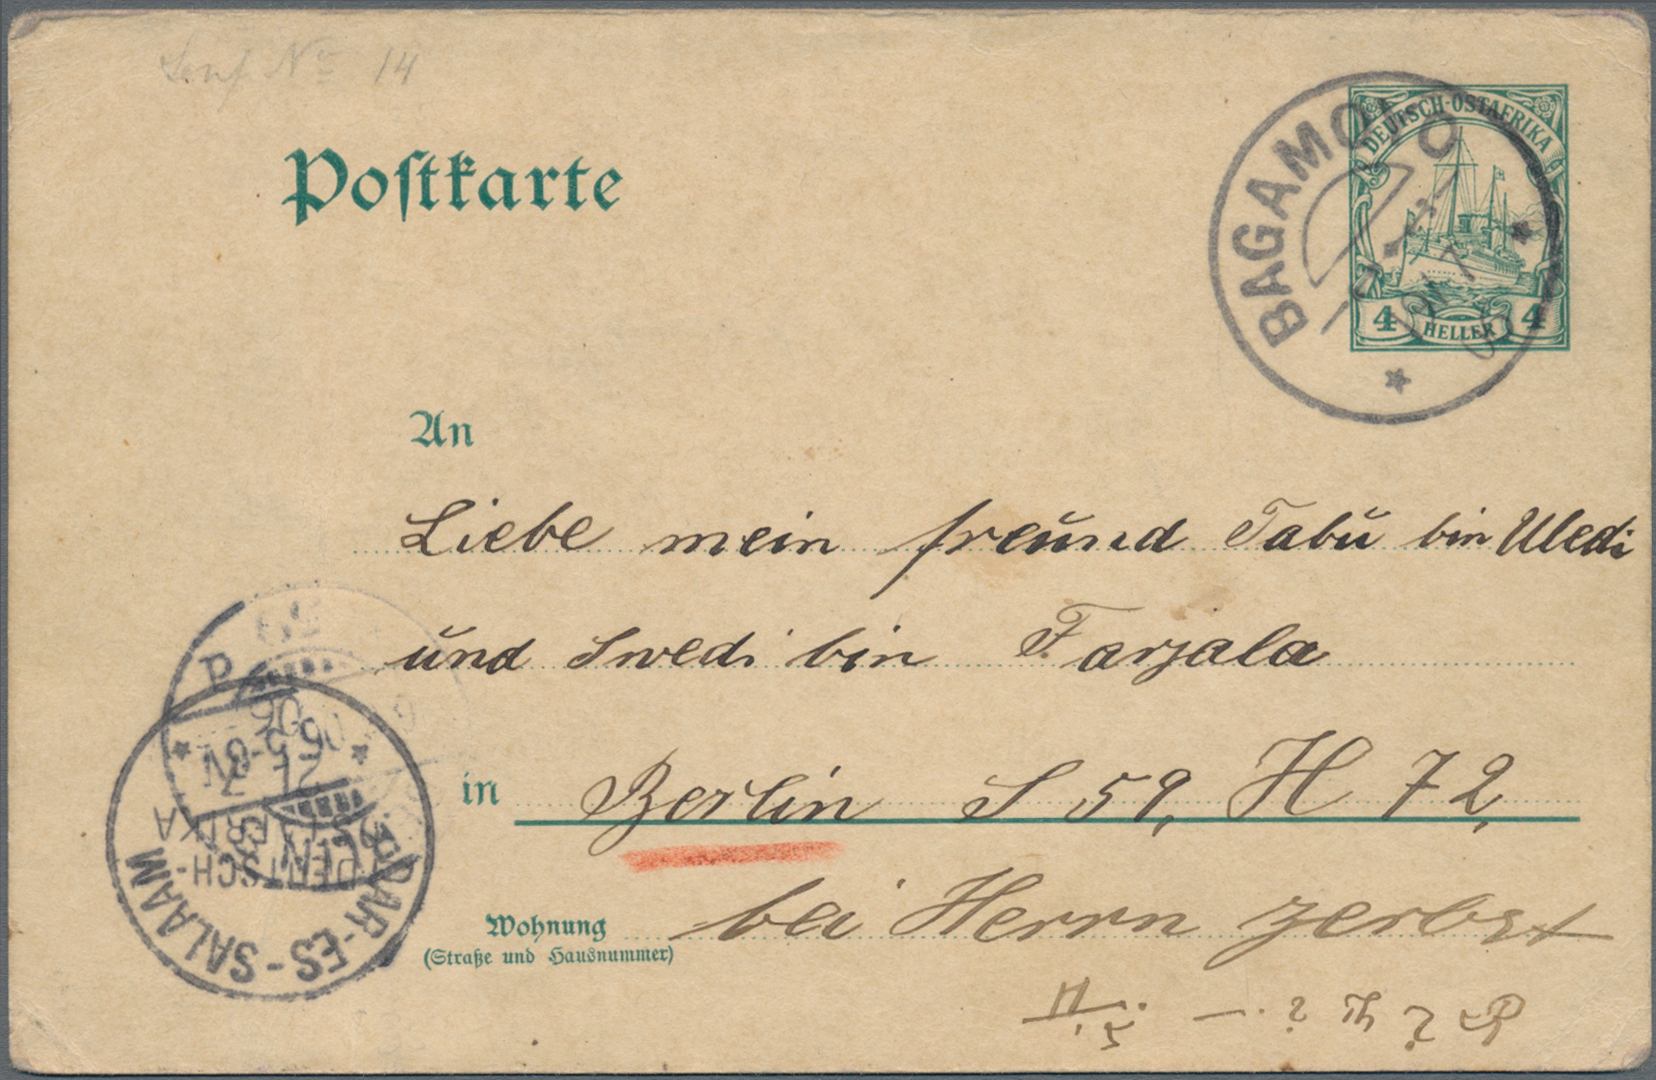 No 14
Postkarte
DEUTSCH-OSTAFRIKA
4 HELLER 4
BAGAMOYO
An
Liebe mein freund Tabu bin Uledi
und Swedi bin Farjala
in Berlin S 59, H 72,
bei Herrn Zerbst
Wohnung
(Straße und Hausnummer)
DAR-ES-SALAAM
DEUTSCH-
OSTAFRIKA
BERLIN